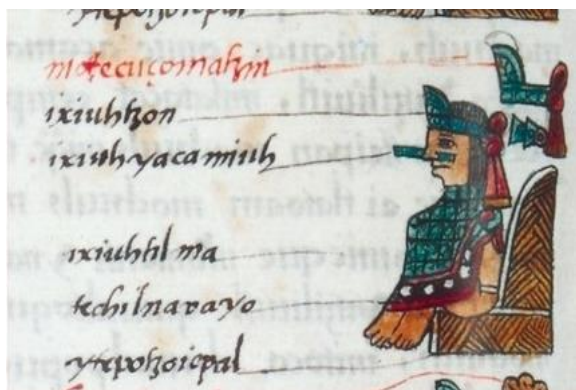 ytepotzoicpal
motecuçomatzin
ixiuhtzon
ixiuhyacamiuh
ixiuhtilma
techilnavayo
ytepotzoicpal